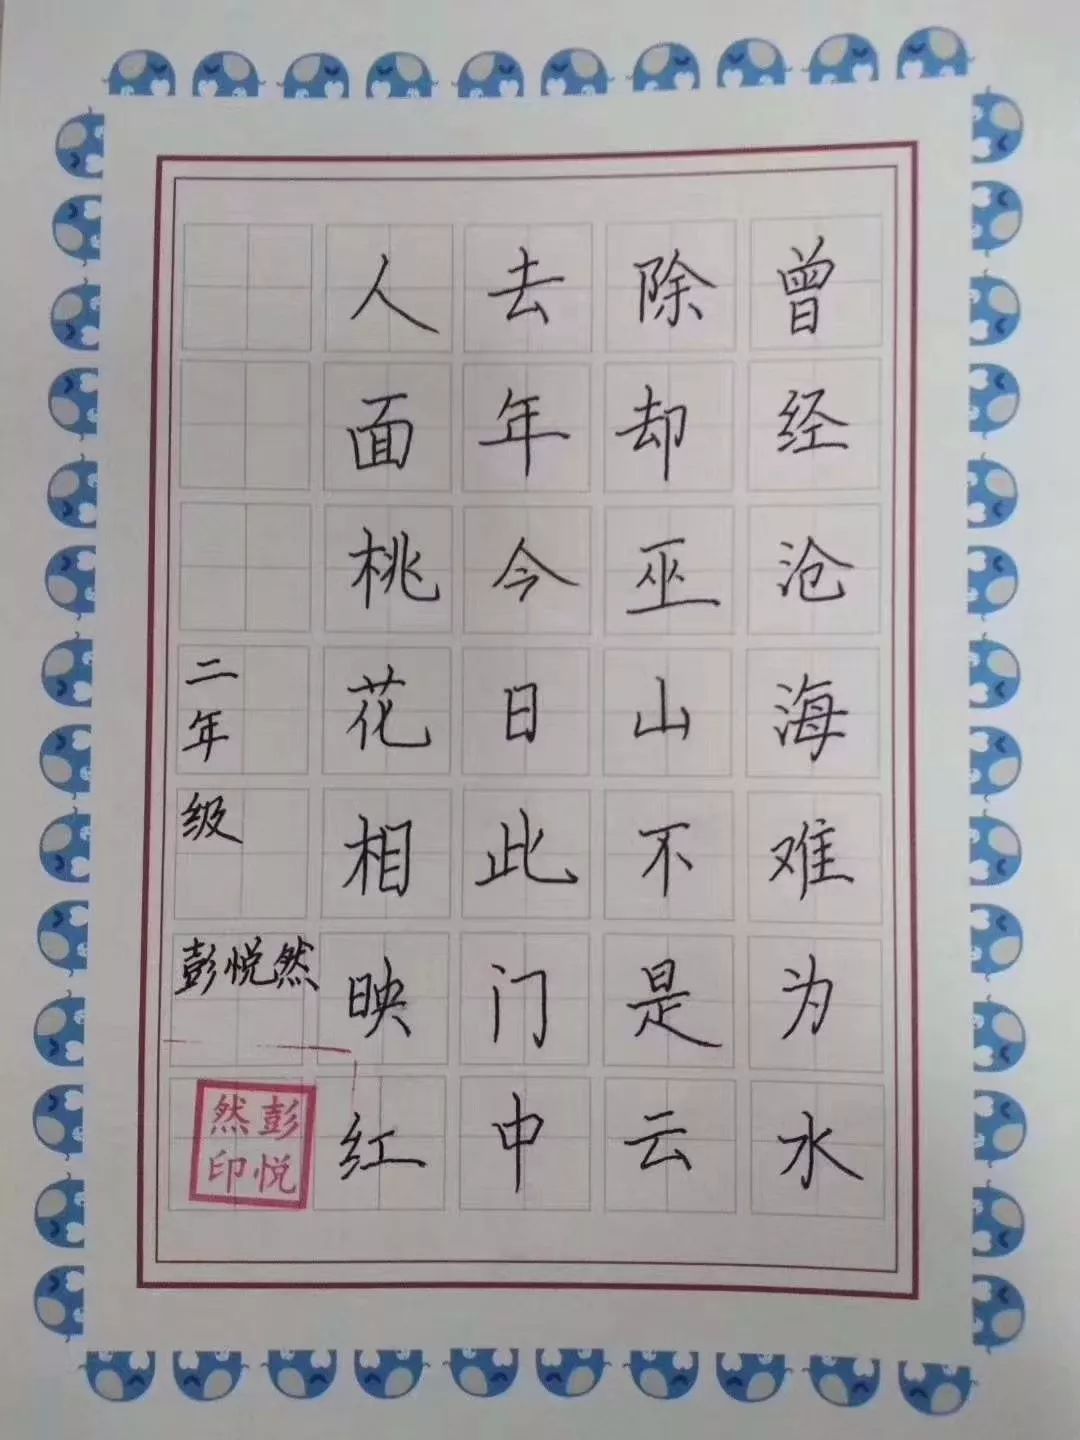 曾经沧海难为水
除却巫山不是云
去年今日此门中
人面桃花相映红
二年级
彭悦然
彭悦
然印